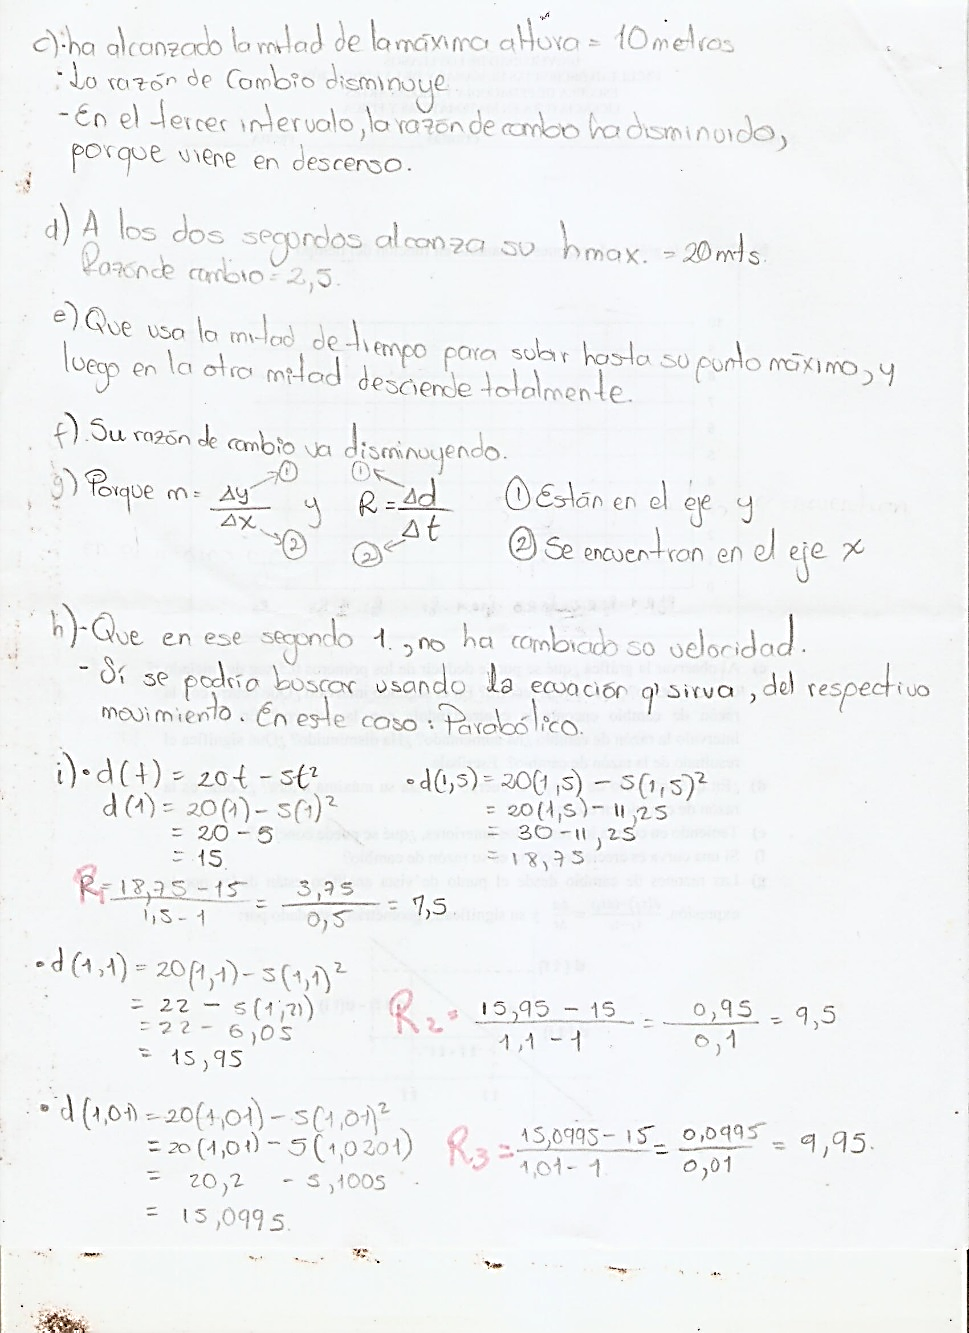 c)·ha alcanzado la mitad de la máxima altura = 10 metros
·La razón de Cambio disminuye
-En el tercer intervalo, la razón de cambio ha disminuido,
porque viene en descenso.
d) A los dos segundos alcanza su hmax. = 20 mts.
Razón de cambio = 2,5.
e) Que usa la mitad de tiempo para subir hasta su punto máximo, y
luego en la otra mitad desciende totalmente.
f). Su razón de cambio va disminuyendo.
g) Porque m = Δy/Δx y R = Δd/Δt
① ①
② ②
① Están en el eje y
② Se encuentran en el eje x
h)-Que en ese segundo 1., no ha cambiado su velocidad.
- Sí se podría buscar usando la ecuación q' sirva, del respectivo
movimiento. En este caso: Parabólico.
i)• d(t) = 20t - 5t²
d(1) = 20(1) - 5(1)²
= 20 - 5
= 15
• d(1,5) = 20(1,5) - 5(1,5)²
= 20(1,5) - 11,25
= 30 - 11,25
= 18,75
R1 = 18,75 - 15/1,5 - 1 = 3,75/0,5 = 7,5
• d(1,1) = 20(1,1) - 5(1,1)²
= 22 - 5(1,21)
= 22 - 6,05
= 15,95
R2 = 15,95 - 15/1,1 - 1 = 0,95/0,1 = 9,5
• d(1,01) = 20(1,01) - 5(1,01)²
= 20(1,01) - 5(1,0201)
= 20,2 - 5,1005
= 15,0995.
R3 = 15,0995 - 15/1,01 - 1 = 0,0995/0,01 = 9,95.